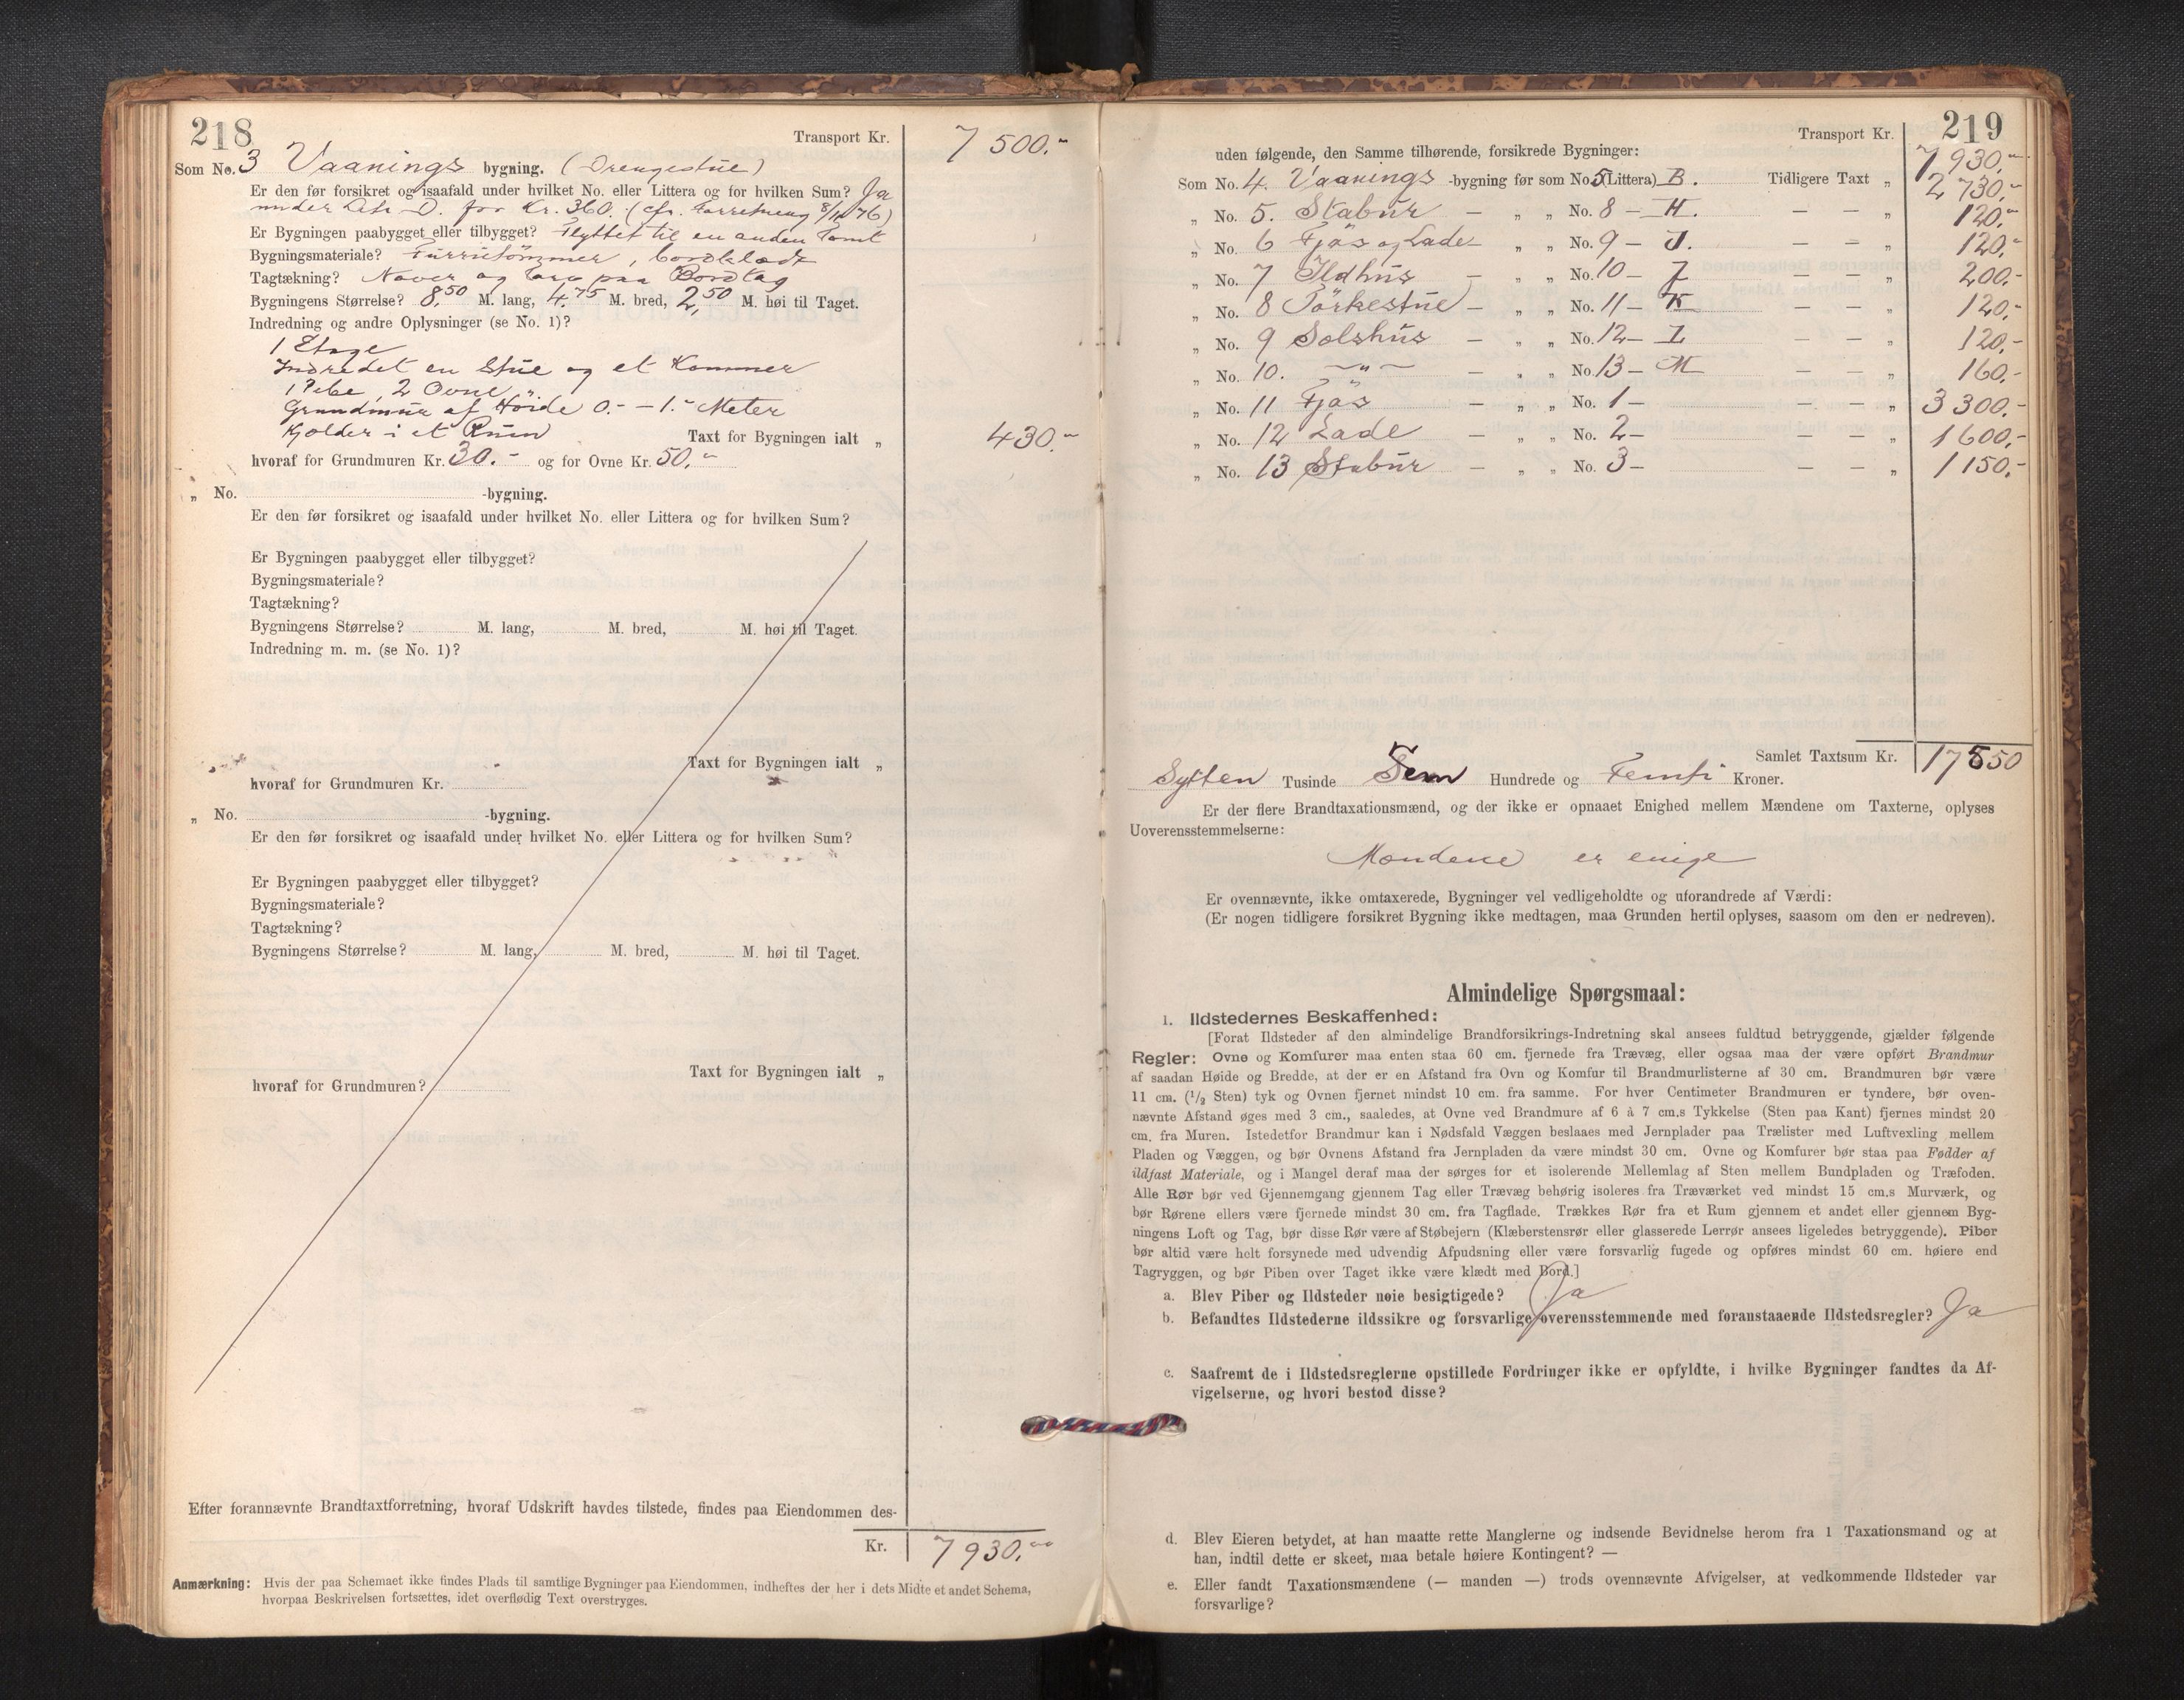 218
Transport Kr. 7 500.-
Som No. 3 Vaanings bygning. (Drengestue)
Er den før forsikret og isaafald under hvilket No. eller Littera og for hvilken Sum? Ja
under Litr. D. for Kr. 360. (cfr. Forretning 8/10 76)
Er Bygningen paabygget eller tilbygget? Flyttet til en anden Tomt
Bygningsmateriale? Furrutömmer, bordklædt
Tagtækning? Næver og Torv paa Bordtag
Bygningens Størrelse? 8,50 M. lang, 4,75 M. bred, 2,50 M. høi til Taget.
Indredning og andre Oplysninger (se No. 1)?
1 Etage
Indredet en Stue og et Kammer
1 Pibe, 2 Ovne
Grundmur af Höide 0.- – 1.- Meter
Kjælder i et Rum Taxt for Bygningen ialt „ 430.-
hvoraf for Grundmuren Kr. 30.- og for Ovne Kr. 50.-
„ No. -bygning.
Er den før forsikret og isaafald under hvilket No. eller Littera og for hvilken Sum?
Er Bygningen paabygget eller tilbygget?
Bygningsmateriale?
Tagtækning?
Bygningens Størrelse? M. lang, M. bred, M. høi til Taget.
Indredning m. m. (se No. 1)?
Taxt for Bygningen ialt „
hvoraf for Grundmuren Kr.
„ No. -bygning.
Er den før forsikret og isaafald under hvilket No. eller Littera og for hvilken Sum?
Er Bygningen paabygget eller tilbygget?
Bygningsmateriale?
Tagtækning?
Bygningens Størrelse? M. lang, M. bred, M. høi til Taget.
Taxt for Bygningen ialt „
hvoraf for Grundmuren?
Efter forannævnte Brandtaxtforretning, hvoraf Udskrift havdes tilstede, findes paa Eiendommen des-
Kr. 7 930.-
Anmærkning: Hvis der paa Schemaet ikke findes Plads til samtlige Bygninger paa Eiendommen, indheftes der her i dets Midte et andet Schema,
hvorpaa Beskrivelsen fortsættes, idet overflødig Text overstryges.
219
Transport Kr. 7 930.-
uden følgende, den Samme tilhørende, forsikrede Bygninger:
Som No. 4. Vaanings -bygning før som No. 5 (Littera) B. Tidligere Taxt „ 2 730.-
„ No. 5. Stabur — „ „ No. 8 — H. — — „ 120.-
„ No. 6 Fjös og Lade — „ „ No. 9 — I. — — „ 120.-
„ No. 7 Ildhus — „ „ No. 10 — J — — „ 200.-
„ No. 8 Törkestue — „ „ No. 11 — K — — „ 120.-
„ No. 9 Solshus — „ „ No. 12 — L — — „ 120.-
„ No. 10. —„— — „ „ No. 13 — M — — „ 160.-
„ No. 11 Fjös — „ „ No. 1 — — — „ 3 300.-
„ No. 12 Lade — „ „ No. 2 — — — „ 1 600.-
„ No. 13 Stabur — „ „ No. 3 — — — „ 1 150.-
Samlet Taxtsum Kr. 17 550
Sytten Tusinde Fem Hundrede og Femti Kroner.
Er der flere Brandtaxationsmænd, og der ikke er opnaaet Enighed mellem Mændene om Taxterne, oplyses
Uoverensstemmelserne:
Mændene er enige
Er ovennævnte, ikke omtaxerede, Bygninger vel vedligeholdte og uforandrede af Værdi:
(Er nogen tidligere forsikret Bygning ikke medtagen, maa Grunden hertil oplyses, saasom om den er nedreven).
Almindelige Spørgsmaal:
1. Ildstedernes Beskaffenhed:
[Forat Ildsteder af den almindelige Brandforsikrings-Indretning skal ansees fuldtud betryggende, gjælder følgende
Regler: Ovne og Komfurer maa enten staa 60 cm. fjernede fra Trævæg, eller ogsaa maa der være opført Brandmur
af saadan Høide og Bredde, at der er en Afstand fra Ovn og Komfur til Brandmurlisterne af 30 cm. Brandmuren bør være
11 cm. (1/2 Sten) tyk og Ovnen fjernet mindst 10 cm. fra samme. For hver Centimeter Brandmuren er tyndere, bør oven-
nævnte Afstand øges med 3 cm., saaledes, at Ovne ved Brandmure af 6 à 7 cm.s Tykkelse (Sten paa Kant) fjernes mindst 20
cm. fra Muren. Istedetfor Brandmur kan i Nødsfald Væggen beslaaes med Jernplader paa Trælister med Luftvexling mellem
Pladen og Væggen, og bør Ovnens Afstand fra Jernpladen da være mindst 30 cm. Ovne og Komfurer bør staa paa Fødder af
ildfast Materiale, og i Mangel deraf maa der sørges for et isolerende Mellemlag af Sten mellem Bundpladen og Træfoden.
Alle Rør bør ved Gjennemgang gjennem Tag eller Trævæg behørig isoleres fra Træværket ved mindst 15 cm.s Murværk, og
bør Rørene ellers være fjernede mindst 30 cm. fra Tagflade. Trækkes Rør fra et Rum gjennem et andet eller gjennem Byg-
ningens Loft og Tag, bør disse Rør være af Støbejern (Klæberstensrør eller glasserede Lerrør ansees ligeledes betryggende). Piber
bør altid være helt forsynede med udvendig Afpudsning eller være forsvarlig fugede og opføres mindst 60 cm. høiere end
Tagryggen, og bør Piben over Taget ikke være klædt med Bord.]
a. Blev Piber og Ildsteder nøie besigtigede? Ja
b. Befandtes Ildstederne ildssikre og forsvarlige overensstemmende med foranstaaende Ildstedsregler? Ja
c. Saafremt de i Ildstedsreglerne opstillede Fordringer ikke er opfyldte, i hvilke Bygninger fandtes da Af-
vigelserne, og hvori bestod disse?
d. Blev Eieren betydet, at han maatte rette Manglerne og indsende Bevidnelse herom fra 1 Taxationsmand og at
han, indtil dette er skeet, maa betale høiere Kontingent? —
e. Eller fandt Taxationsmændene (— manden —) trods ovennævnte Afvigelser, at vedkommende Ildsteder var
forsvarlige?